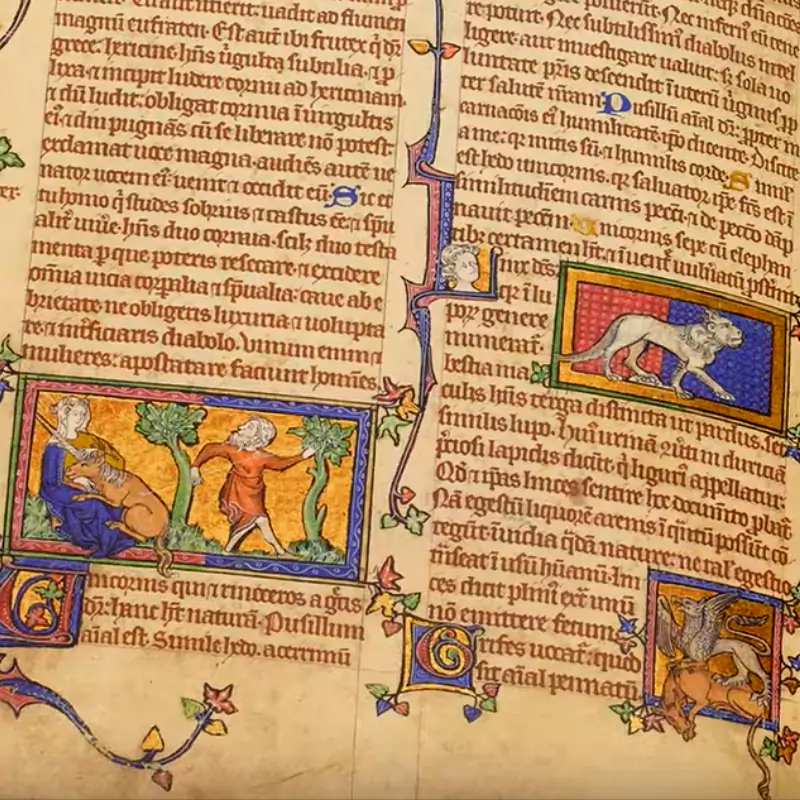 magnū eufraten. Est aut̄ ibi frutex q̄ dr̄
grece hericine hn̄s ỻgulta subtilia ⁊ p
lixa ⁊ incipit ludere cornu ad hericinam
⁊ dū ludit obligat cornua ī uirgultis
ei᷒ ⁊ diu pugnās cū se liberare nō potest
exclamat uoce magna. audiēs autē ue
nator uocem ei᷒ uenit ⁊ occidit eū. Sic et
tu homo q̄ studes sobrius ⁊ castus eē ⁊ sp̄u
alit᷑ uiue. hn̄s duo cornua. scil duo testa
menta p que poteris resecare ⁊ excidere
om̄ia uicia corpalia ⁊ sp̄ualia. caue ab e
brietate ne obligeris luxuria ⁊ uolupta
te ⁊ int᷑ficiaris diabolo. Vinum enim ⁊
mulieres apostatare faciunt hom̄es.
Unicornis qui ⁊ rinoceros a grecis
dr̄ hanc h̄t naturā. Pusillum
aīal est. Simile hedo. acerrimū
potuit. Nec subtilissim᷒ diabolus intel
ligere aut inuestigare ualuit. s; sola uo
luntate pr̄is descendit ī uterū ỻginis pp
ter salutē nr̄am. Pusillū aīal dr̄. ppter in
carnacōis ei᷒ humilitatē ip̄o dicente. Discite
a me qr mitis sū ⁊ humilis corde. Simil
est hedo unicornis. qr saluator ip̄e fc̄s est ī
similitudīem carnis pecc̄i ⁊ de pecc̄o dāp
nauit pecc̄m. Unicornis sepe cū elephan
tib᷒ certamen h̄t. ⁊ ī uent̄ uuln̄atū pst̄nit
Linx dc̄s
qr ī lu
por genere
numerat᷑
bestia ma
culis hn̄s terga distincta ut pardus. set
similis lupo. Hui᷒ urinā 9ūti in duriciā
p̄ciosi lapidis dicūt. q̄ liguri᷒ appellatur.
Qd̄ ⁊ ip̄as linces sentire hoc docum̄to pbat᷑
Nā egestū liquorē arenis ī q̄ntū possūt cō
tegūt. īuidia q̄dā nature ne tal᷒ egestio
t̄nseat ī usū hūanū. Lin
ces dicit plini᷒ ext̄ unū
nō emittere fetum
Grifes uocat᷑ quod
sit aīal pennatū